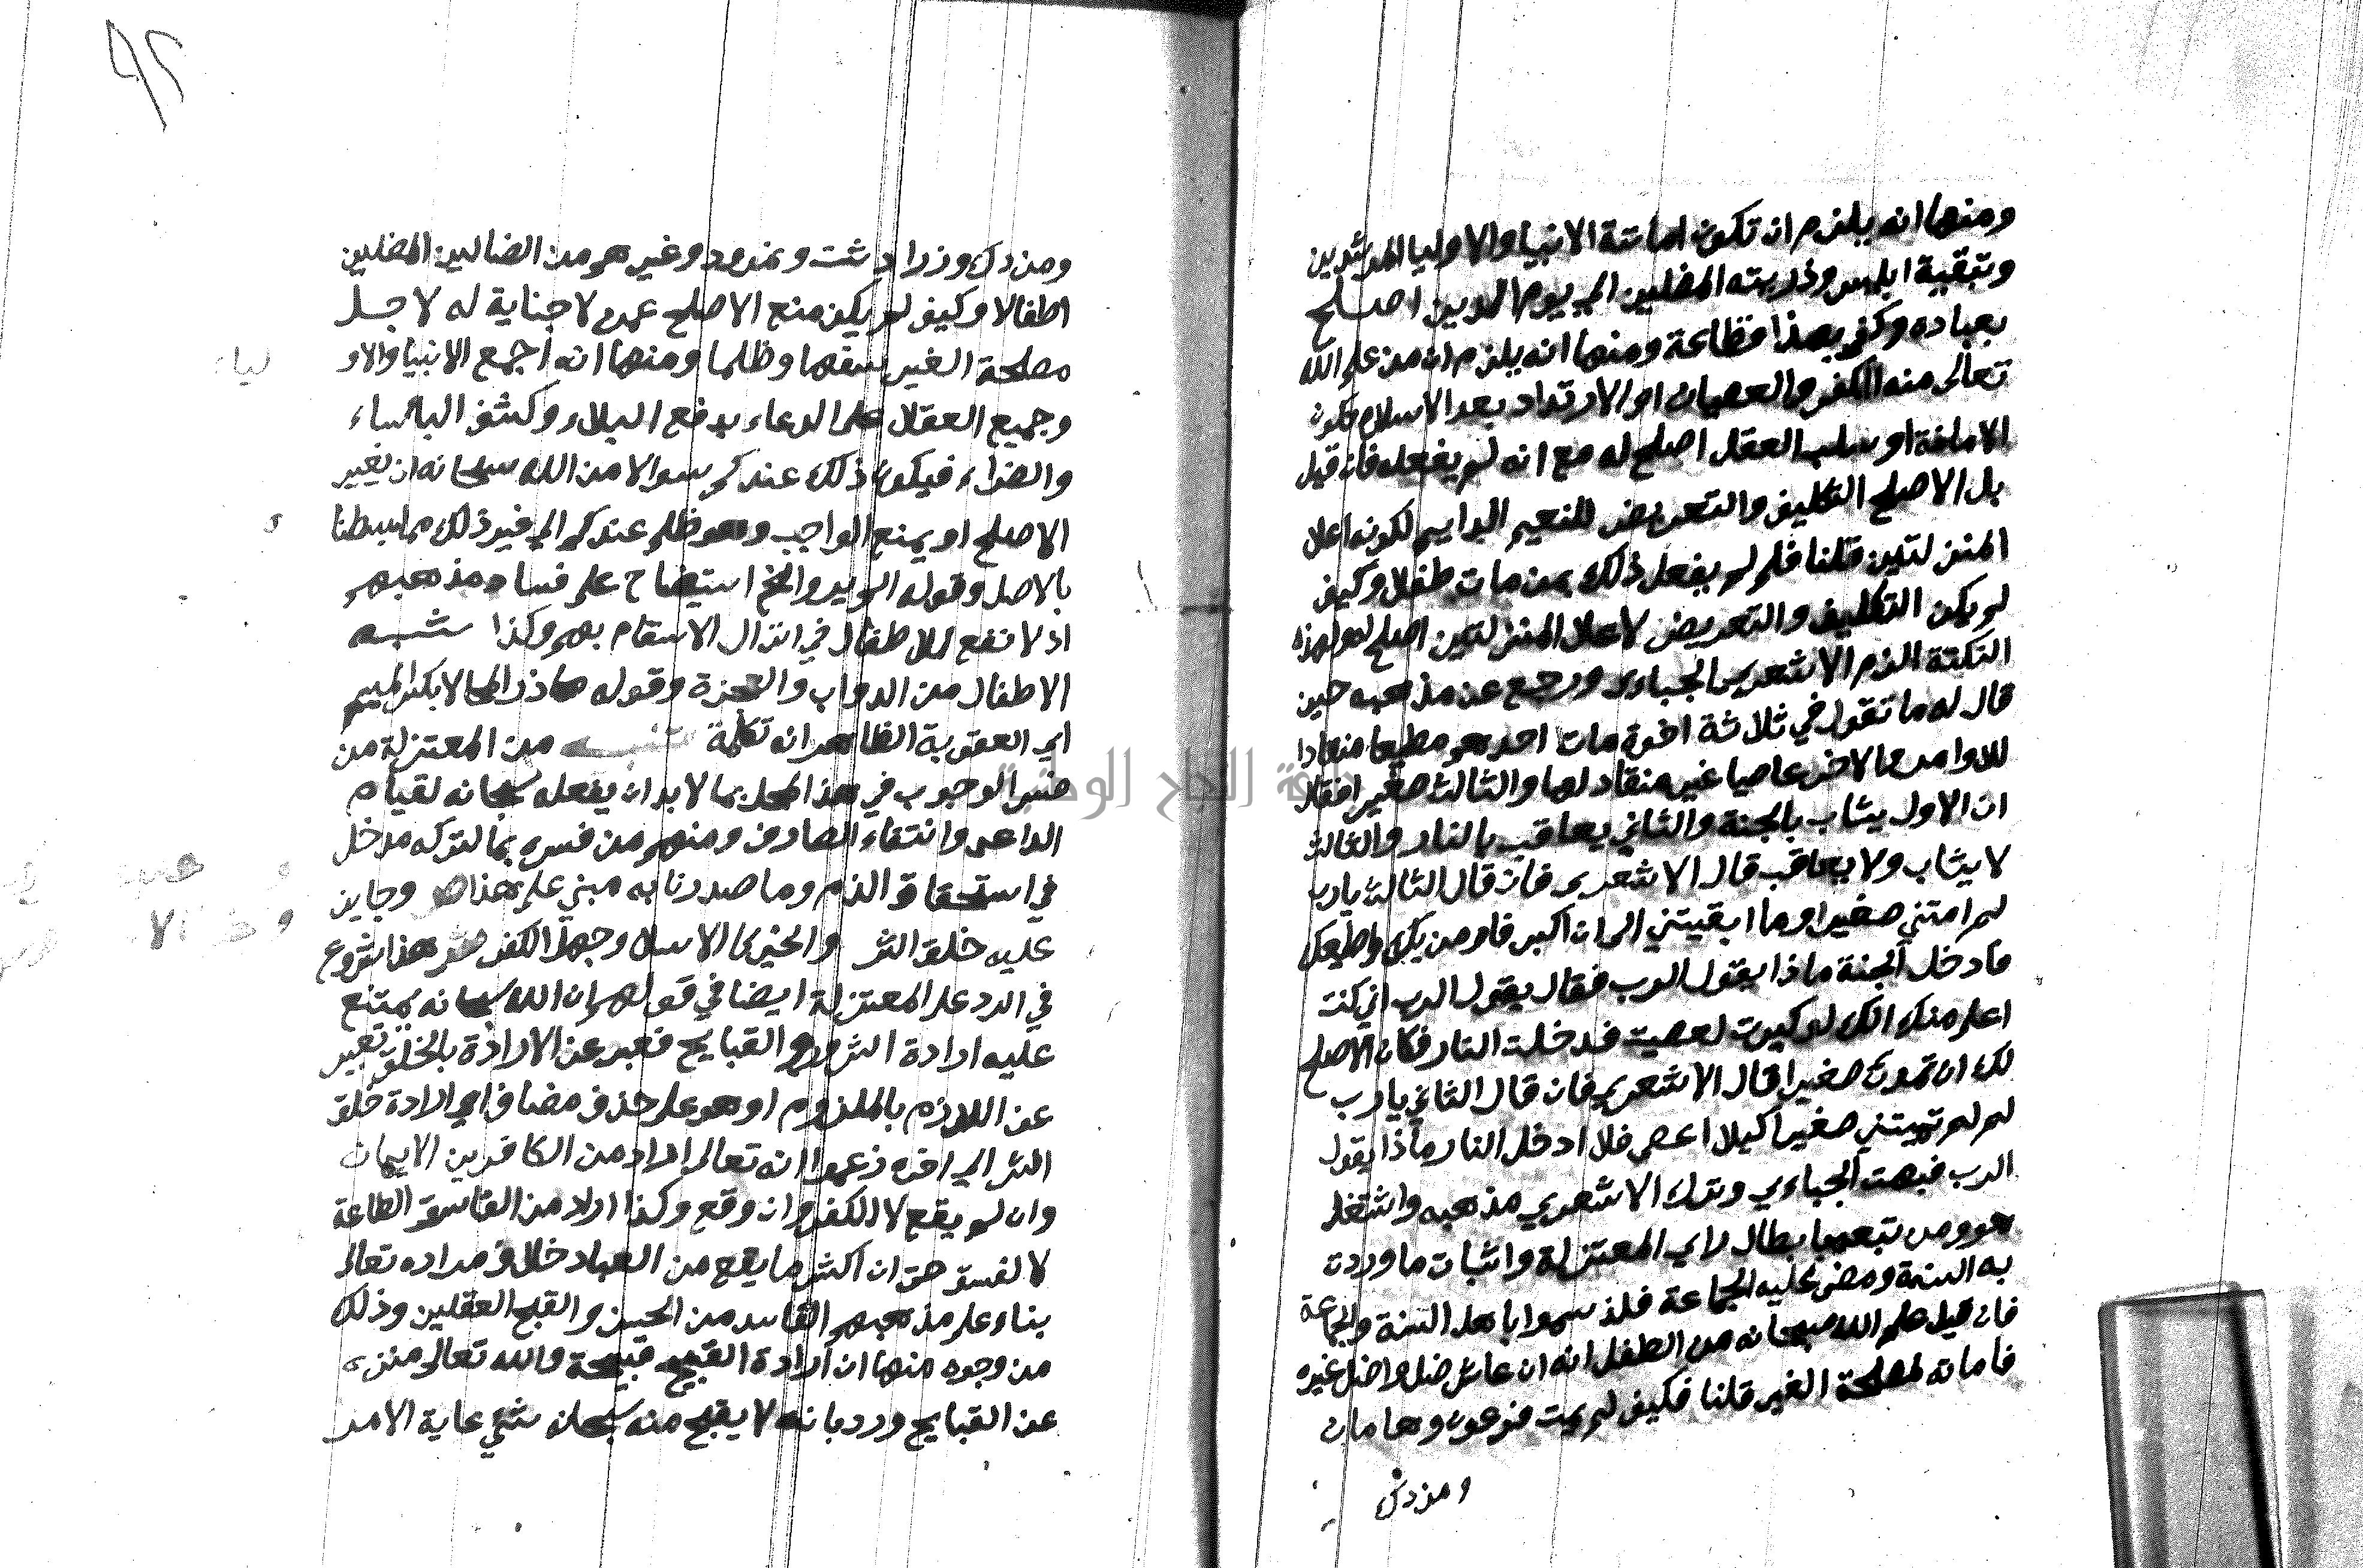 ومنها انه يلزم ان تكون اماتة الانبيا والاوليا المرشدين
وتبقية ابليس وذريته المضلين الي يوم الدين اصلح
بعباده وكفي بهذا فظاعة ومنها انه يلزم ان من علم الله
تعالى منه الكفر والعصيان او الارتداد بعد الاسلام فتكون
الاماتة او سلب العقل اصلح له مع انه لم يفعله فان قيل
بل الاصلح التكليف والتعريض للنعيم الدايم لكونه اعلا
المنزلتين قلنا فلم لم يفعل ذلك بمن مات طفلا وكيف
لم يكن التكليف والتعريض لاعلا المنزلتين اصلح له ولهذه
النكتة الزم الاشعري الجباءي ورجع عن مذهبه حين
قال له ما تقول في ثلاثة اخوة مات احدهم مطيعا منقادا
للاوامر والاخر عاصيا غير منقاد لها والثالث صغيرا فقال
ان الاول يثاب بالجنة والثاني يعاقب بالنار والثالث
لا يثاب ولا يعاقب قال الاشعري فان قال الثالث يا رب
لم امتني صغيرا وما ابقيتني الى ان اكبر فاومن بك واطيعك
فادخل الجنة ماذا يقول الرب فقال يقول الرب اني كنت
اعلم منك انك لو كبرت لعصيت فدخلت النار فكان الاصلح
لك ان تموت صغيرا قال الاشعري فان قال الثاني يا رب
لم لم تميتني صغيرا كيلا اعصي فلا ادخل النار ماذا يقول
الرب فبهت الجباءي وترك الاشعري مذهبه واشتغل
هو ومن تبعه بابطال راي المعتزلة واثبات ما وردت
به السنة ومضى عليه الجماعة فلذ سموا باهل السنة والجماعة
فان قيل علم الله سبحانه من الطفل انه ان عاش ضل واضل غيره
فاماته لمصلحة الغير قلنا فكيف لم يمت فرعون وهامان
ومزدك
ومزدك وزرادشت ونمرود وغيرهم من الضالين المضلين
اطفالا وكيف لم يكن منع الاصلح عمن لا جناية له لاجل
مصلحة الغير سفها وظلما ومنها انه اجمع الانبيا والاو
لياء
وجميع العقلا على الدعاء بدفع البلاء وكشف الباساء
والضراء فيكون ذلك عندكم سوالا من الله سبحانه ان يغير
الاصلح او يمنع الواجب وهو ظلم عندكم الي غير ذلك مما بسطنا
بالاصل وقوله الم يروا الخ استيضاح على فساد مذهبهم
اذ لا نفع للاطفال في انزال الاسقام بهم وكذا شبه
الاطفال من الدواب والعجزة وقوله حاذر المحالا بكسر الميم
اي العقوبة الظاهر انه تكلمة تنبيه من المعتزلة من
فسر الوجوب في هذا المحل بما لا بد ان يفعله سبحانه لقيام
الداعي وانتفاء الصارف ومنهم من فسره بما لتركه مدخل
في استحقاق الذم وما صدرنا به مبني على هذا وجايز
عليه خلق الشر والخير كالاسلام وجهل الكفر هذا شروع
في الرد على المعتزلة ايضا في قولهم ان الله سبحانه يمتنع
عليه ارادة الشرور والقبايح فعبر عن الارادة بالخلق تعبير
عن اللازم بالملزوم او هو على حذف مضاف اي ارادة خلق
الشر الي اخره زعموا انه تعالى اراد من الكافرين الايمان
وان لم يقع لا الكفر وان وقع وكذا اراد من الفاسق الطاعة
لا لفسق حتى ان اكثر ما يقع من العباد خلاف مراده تعالى
بناء على مذهبهم الفاسد من الحسن والقبح العقلين وذلك
من وجوه منها ان ارادة القبيح قبيحة والله تعالى منزه
عن القبايح ورد بانه لا يقبح منه سبحانه شئ غاية الامر